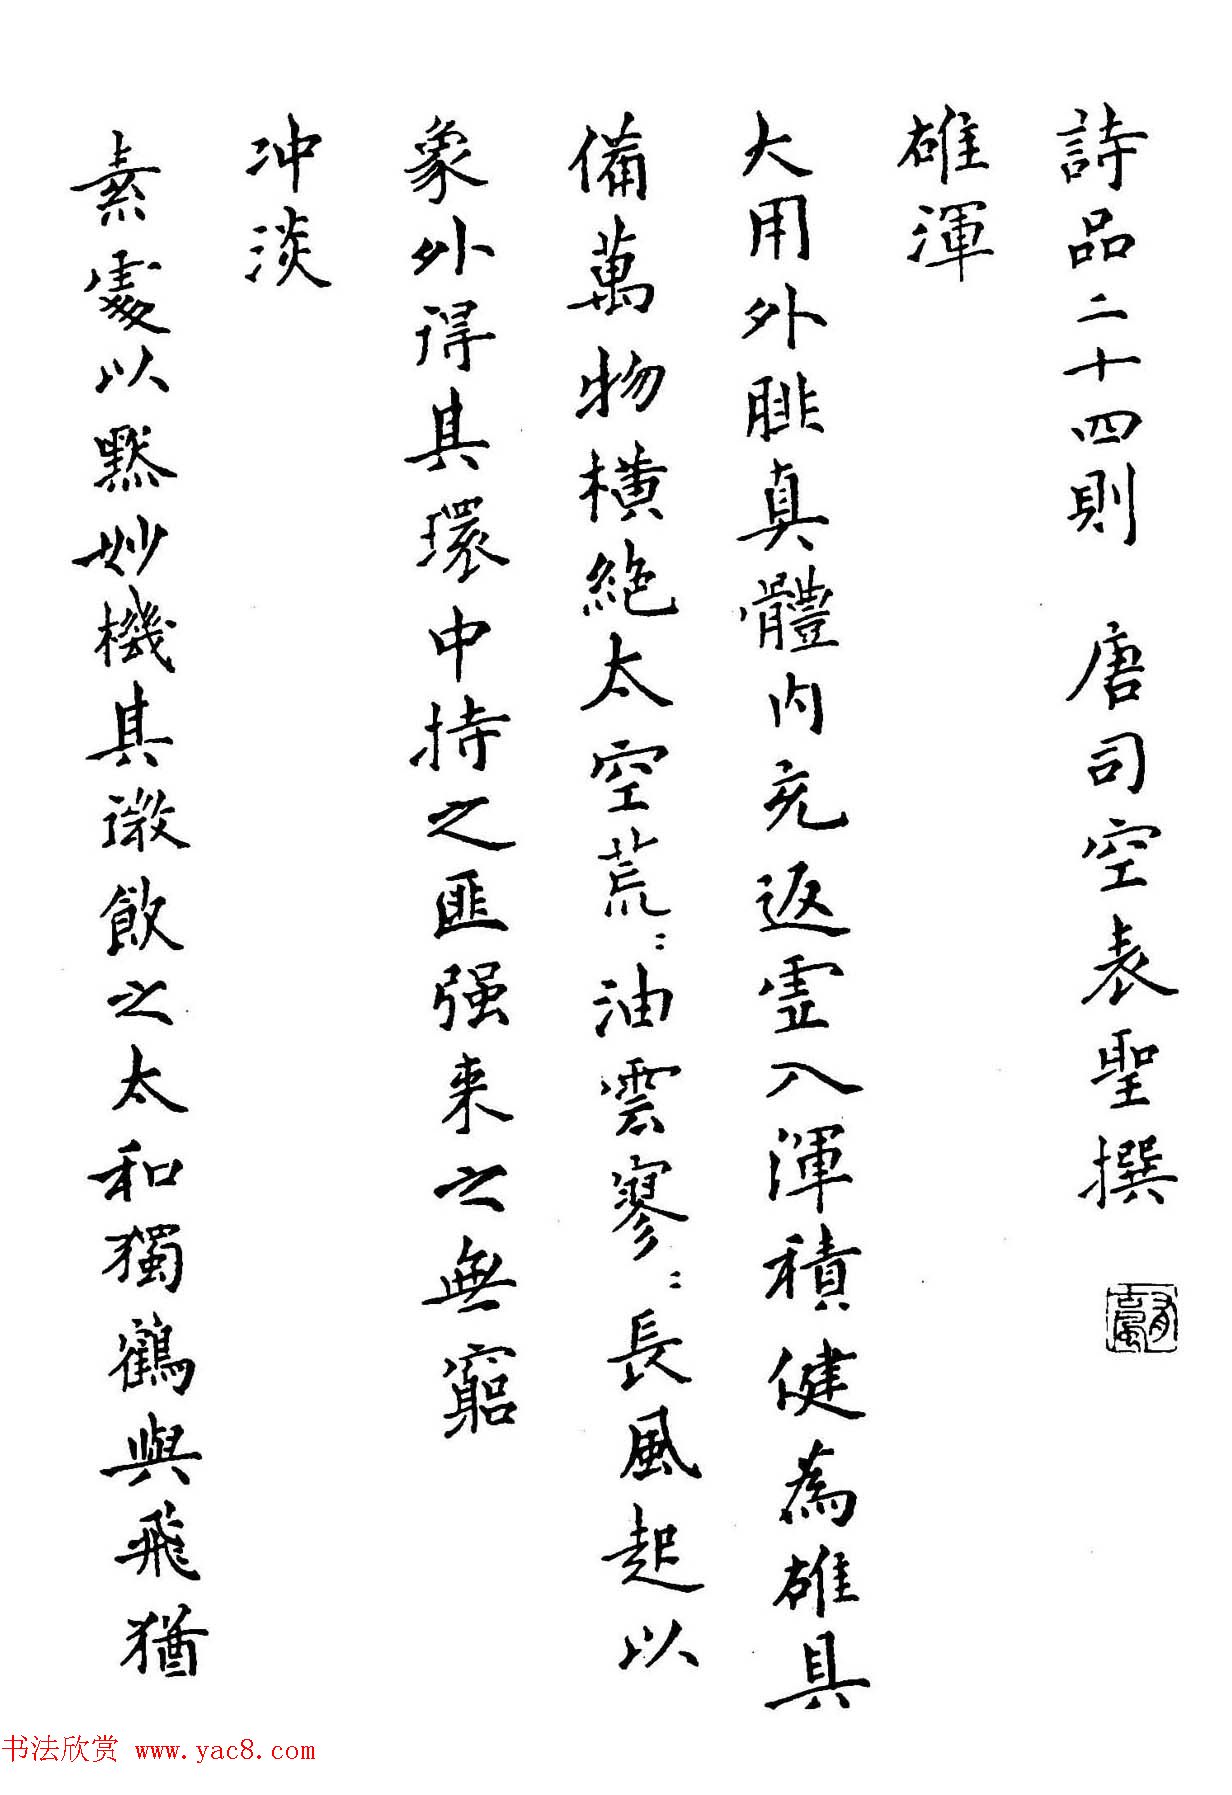 詩品二十四則 唐司空表聖撰
雄渾
大用外腓真體內充返虛入渾積健為雄具
備萬物橫絕太空荒〻油雲寥〻長風起以
象外得其環中持之匪强来之無窮
冲淡
素處以默妙機其微飲之太和獨鶴與飛猶
书法欣赏 www.yac8.com